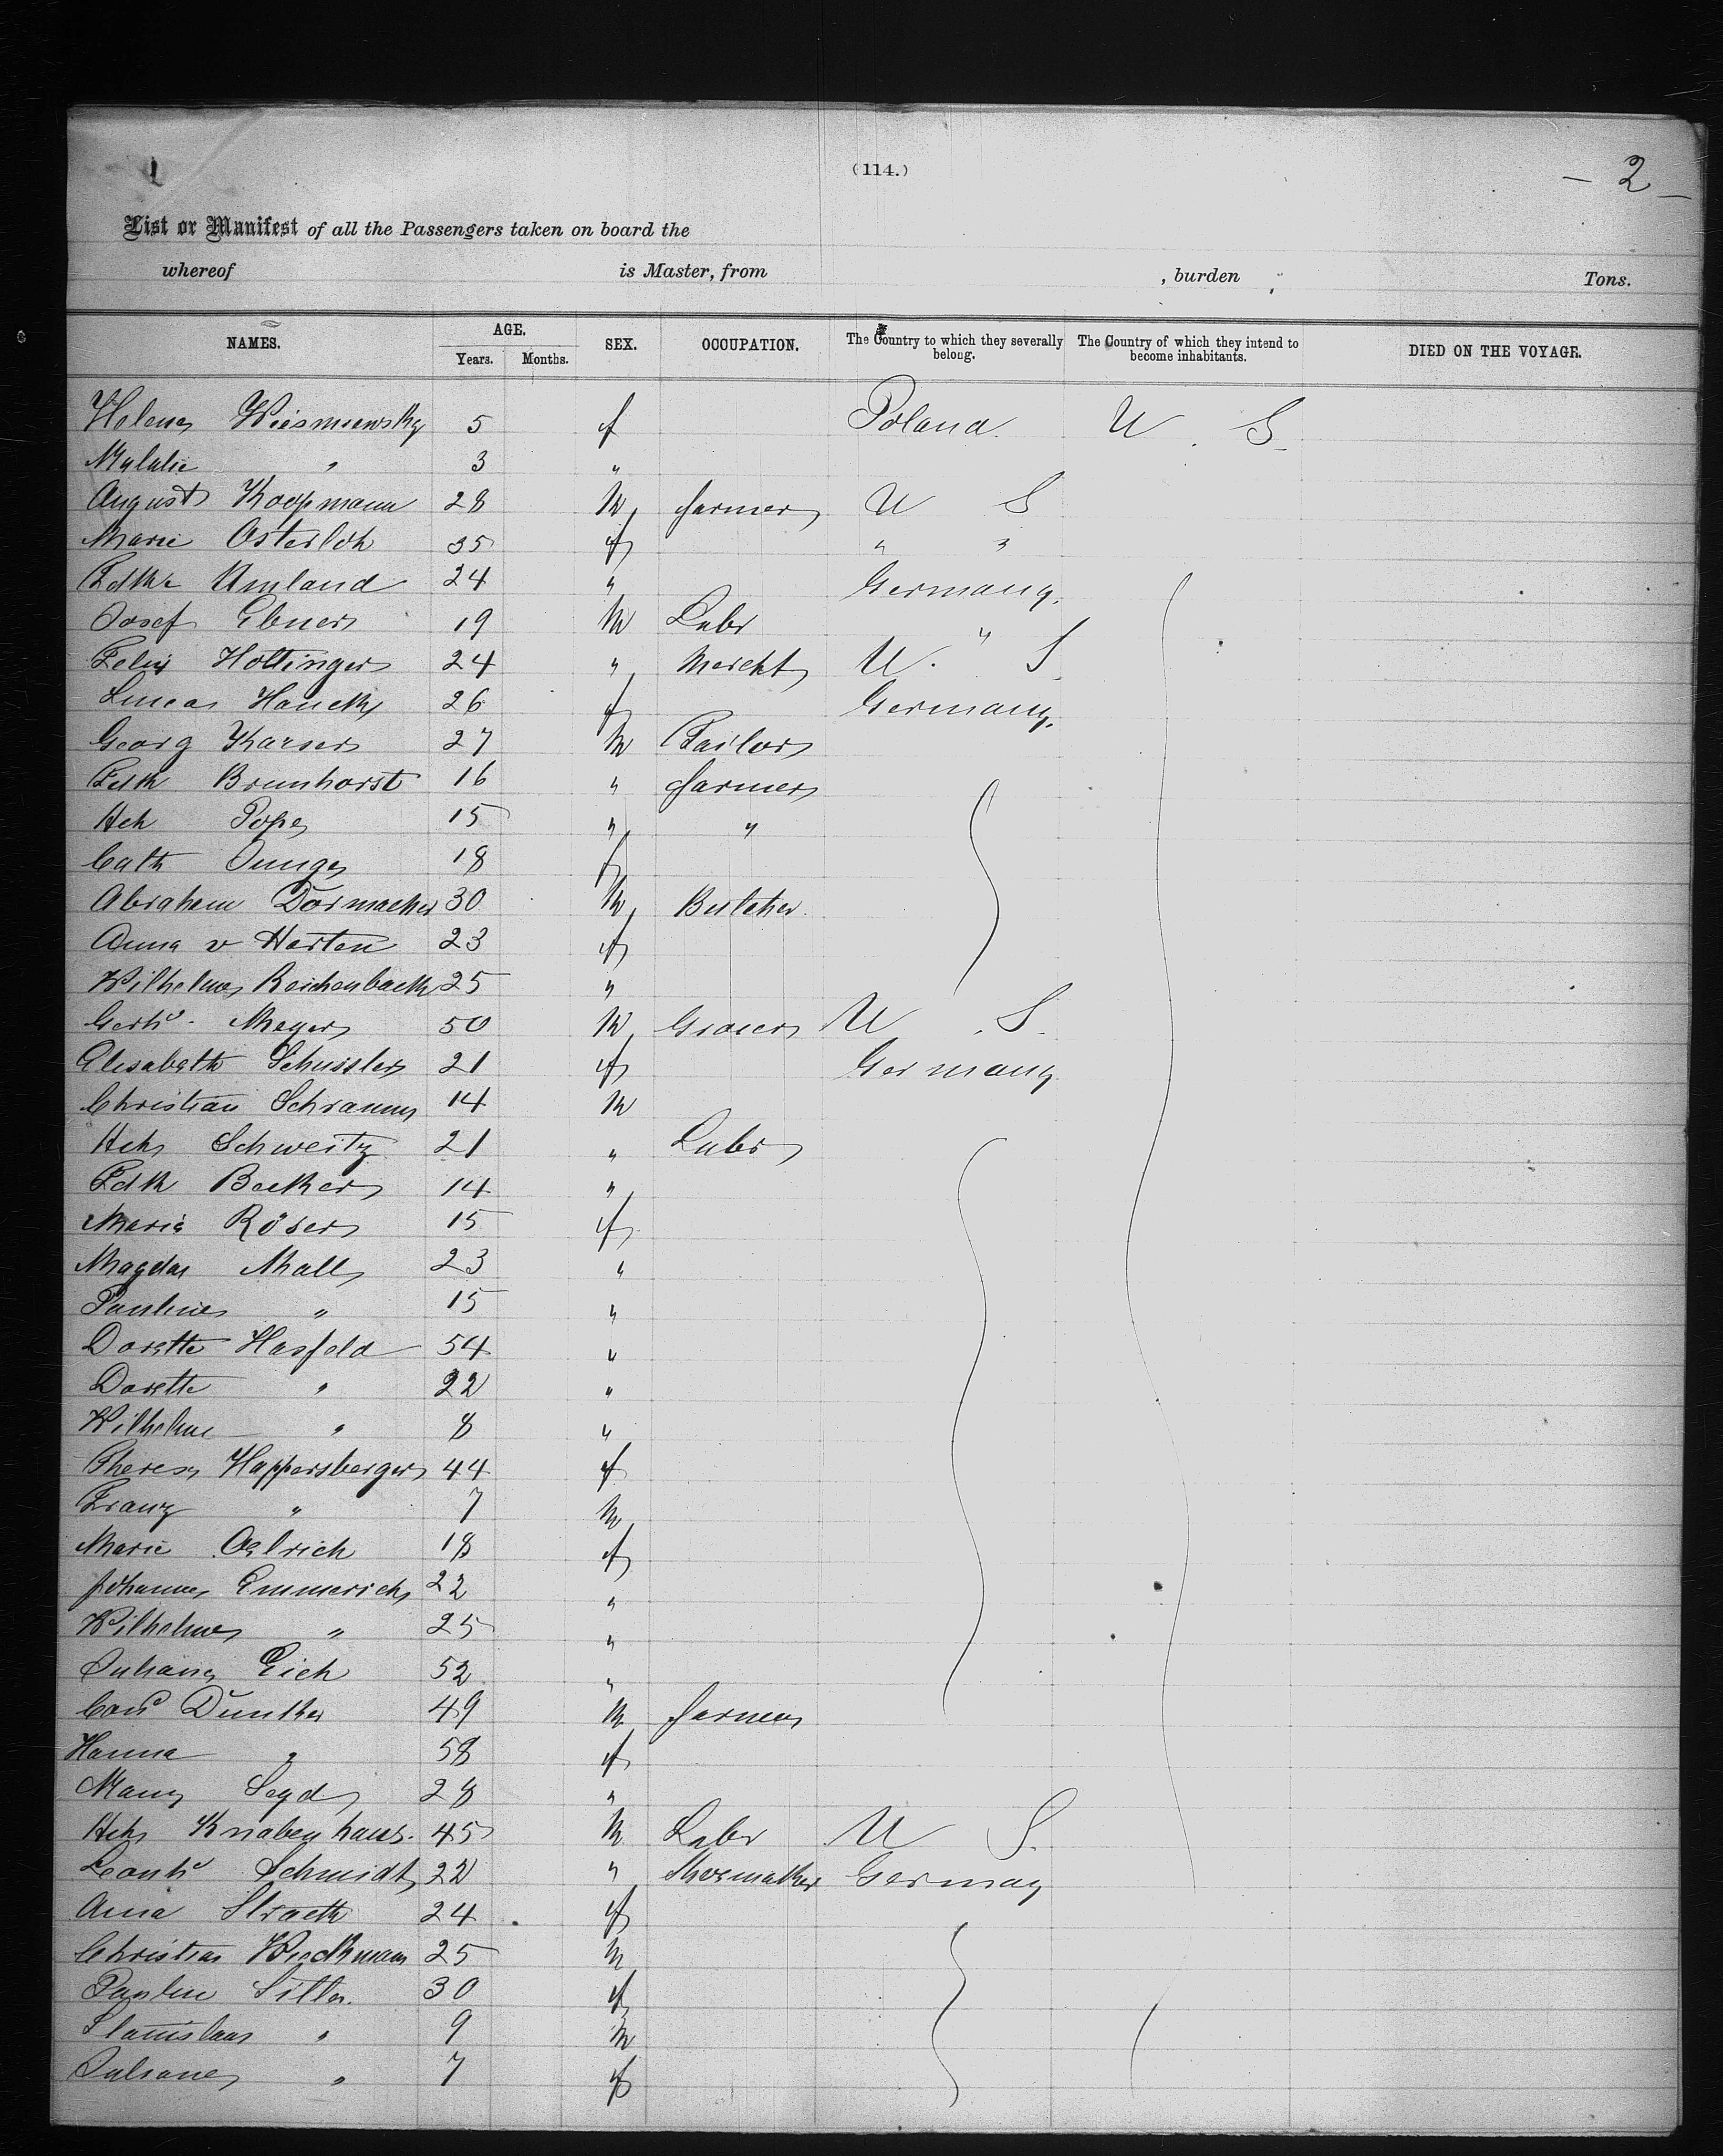 (114.)
- 2 -
List or Manifest of all the Passengers taken on board the
whereof is Master, from , burden Tons.
NAMES. AGE. Years. Months. SEX. OCCUPATION. The Country to which they severally belong. The Country of which they intend to become inhabitants. DIED ON THE VOYAGE.
Helena Wiesniewsky 5 f Poland U. S.
3 "
August Koopmann 28 M farmer U S
Marie Osterloh 35 f " "
Umland 24 " Germany.
Josef Ebner 19 M Labr "
Felix Hottinger 24 " Mercht U. S.
Hauck 26 f Germany.
Georg Kaiser 27 M Tailor
Fdk Brunhorst 16 " farmer
Hch Pope 15 " "
Cath Junge 18 f
Abraham Dormacher 30 M Butcher
Anna v Harten 23 f
Wilhelm Reichenbach 25 "
Gerhd. Meyer 50 M Grocer U. S.
Elisabeth Schussler 21 f Germany
Christian Schramm 14 M
Hch Schweitz 21 " Labr
Fdk Becker 14 "
Maria Röser 15 f
Magda Mall 23 "
Pauline " 15 "
Dorette Hasfeld 54 "
Dorette " 22 "
Wilhelm " 8 "
Theres Happersberger 44 f
Franz " 7 M
Marie Oelrich 18 f
Johanne Emmerich 22 "
Wilhelm " 25 "
Juliana Eich 52 "
Dunker 49 M farmer
Hanna " 58 f
Segd 28 "
Hch Knabenhaus. 45 M Labr U S.
Leonhd Schmidt 22 " Shoemaker Germay
Anna 24 f
Christian Wiedkmann 25 M
Paulin 30 f
Stanislaus " 9 M
Juliane " 7 f